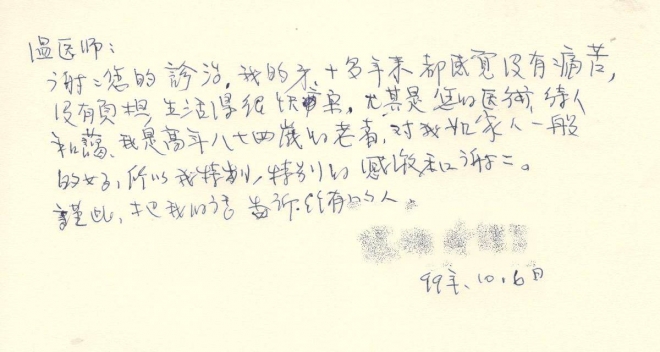 温医师：
谢々您的診治，我的牙，十多年来都感覚没有痛苦，
没有煩惱，生活得很快樂，尤其是您的医術，待人
和藹，我是高年八十四歲的老者，对我如家人一般
的好，所以我特别，特别的感激和谢々。
謹此，把我的話告訴所有的人。
99年、10.6日